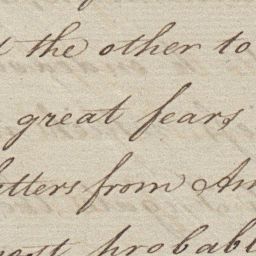 the other to
great fears
letters from Am
most probabl